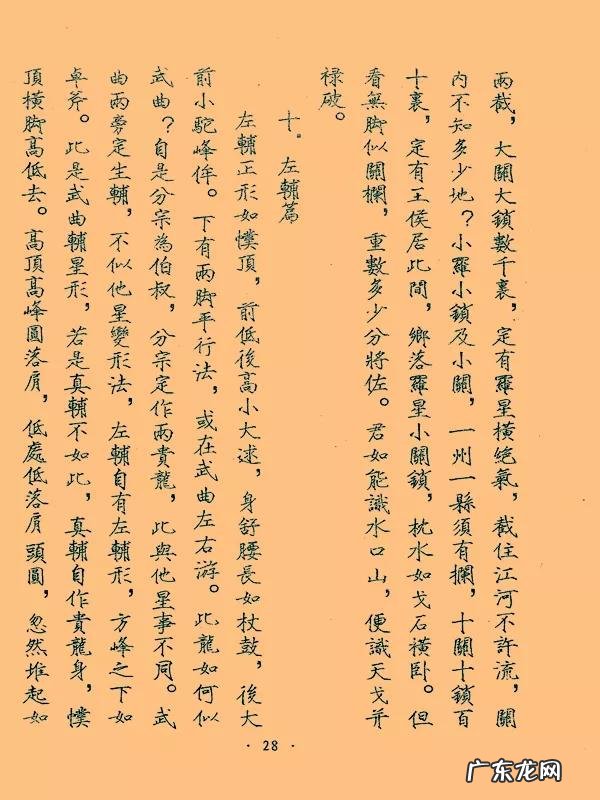 兩截，大關大鎖數千裏，定有羅星橫絕氣，截住江河不許流，關
內不知多少地？小羅小鎖及小關，一州一縣須有攔，十關十鎖百
十裏，定有王侯居此間，鄉落羅星小關鎖，枕水如戈石橫卧。但
看無脚似關欄，重數多少分將佐。君如能識水口山，便識天戈并
禄破。
十。左輔篇
左輔正形如幞頂，前低後高小大逑，身舒腰長如杖鼓，後大
前小駝峰侔。下有兩脚平行法，或在武曲左右游。此龍如何似
武曲？自是分宗為伯叔，分宗定作兩貴龍，此與他星事不同。武
曲兩旁定生輔，不似他星變形法，左輔自有左輔形，方峰之下如
卓斧。此是武曲輔星形，若是真輔不如此，真輔自作貴龍身，幞
頂橫脚高低去。高頂高峰圓落肩，低處低落肩頭圓，忽然堆起如
· 28 ·
广东龙网